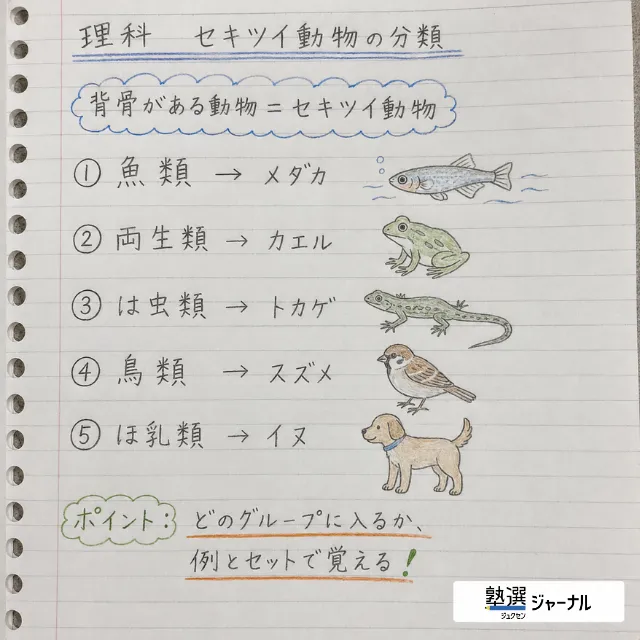 理科 セキツイ動物の分類
背骨がある動物＝セキツイ動物
① 魚類 → メダカ
② 両生類 → カエル
③ は虫類 → トカゲ
④ 鳥類 → スズメ
⑤ ほ乳類 → イヌ
ポイント： どのグループに入るか、
例とセットで覚える！
塾選 ジャーナル
ジュクセン